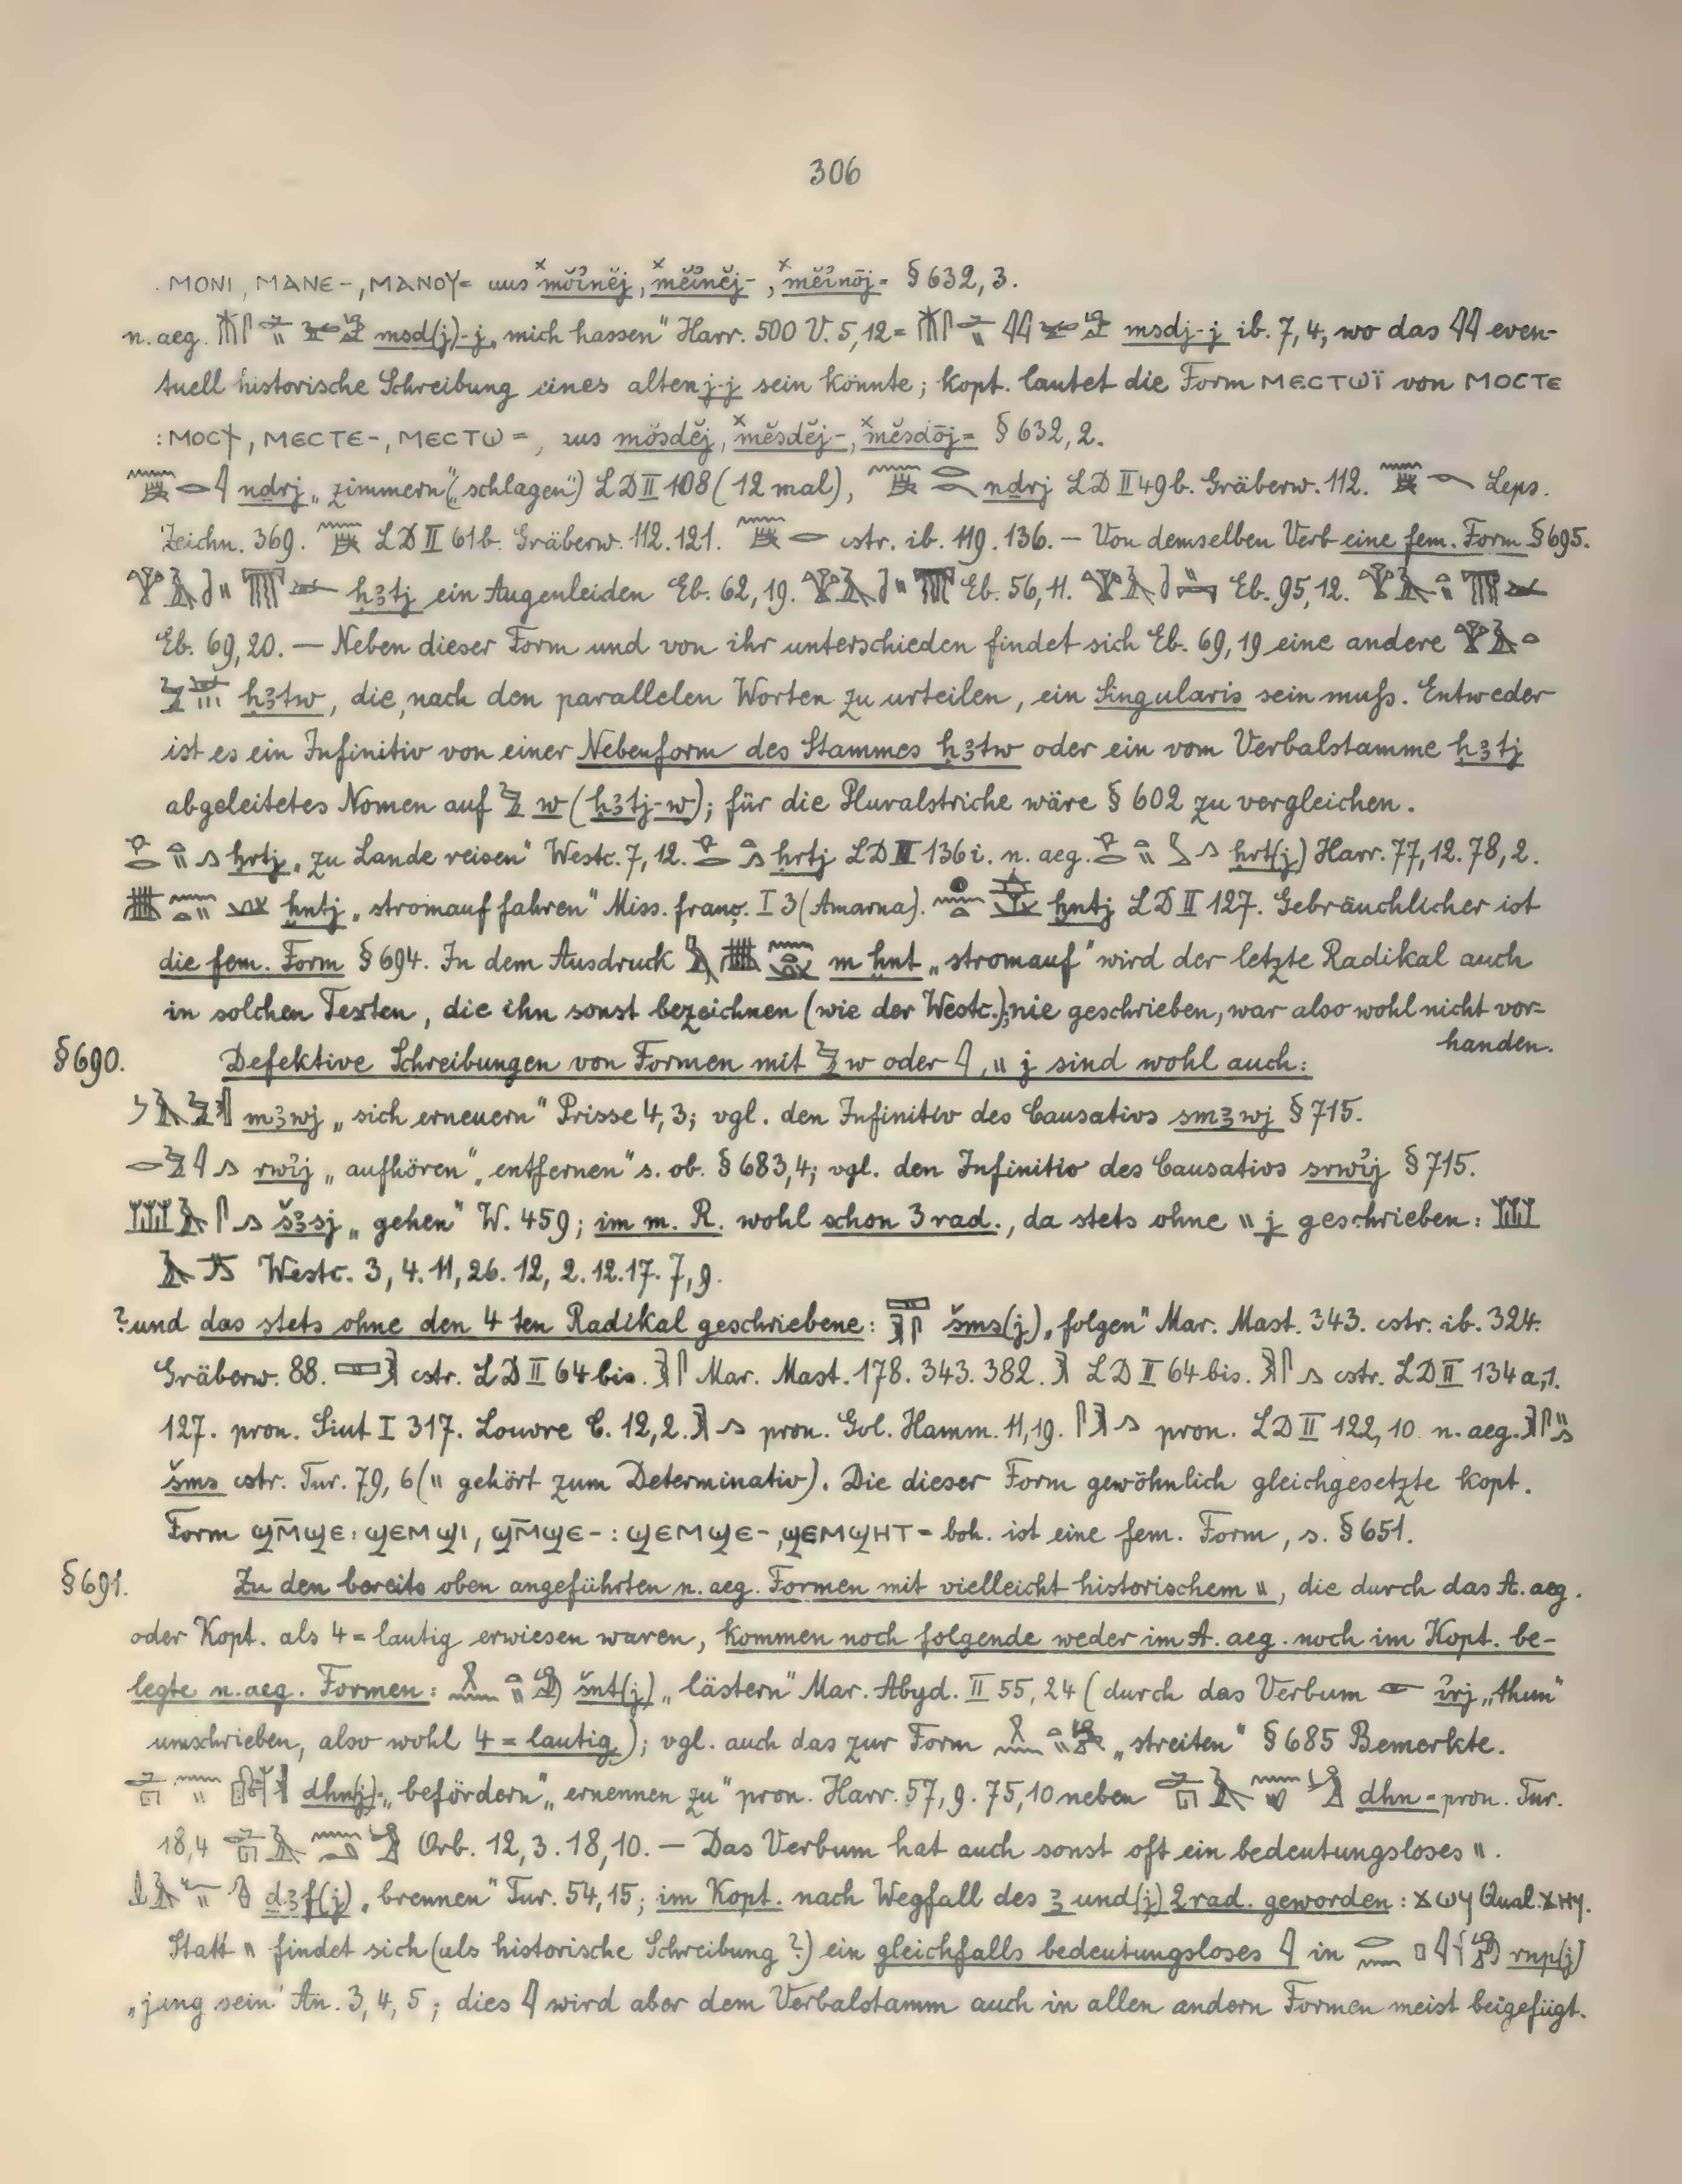 306
ⲙⲟⲛⲓ, ⲙⲁⲛⲉ-, ⲙⲁⲛⲟⲩ= aus § 632, 3.
n. aeg. msd(j)-j „mich hassen" Harr. 500 V. 5,12 = msdj-j ib. 7, 4, wo das 𓇋𓇋 even-
tuell historische Schreibung eines alten j-j sein könnte; kopt. lautet die Form ⲙⲉⲥⲧⲱⲓ̈ von ⲙⲟⲥⲧⲉ
: ⲙⲟⲥϯ, ⲙⲉⲥⲧⲉ-, ⲙⲉⲥⲧⲱ=, aus mŏsdĕj, ˣmĕsdĕj-, ˣmĕsdōj= § 632, 2.
ndrj „zimmern" („schlagen") LD II 108 (12 mal), ndrj LD II 49 b. Gräberw. 112. Leps.
Zeichn. 369. LD II 61 b. Gräberw. 112. 121. cstr. ib. 119. 136. — Von demselben Verb eine fem. Form § 695.
ḫꜣtj ein Augenleiden Eb. 62, 19. Eb. 56, 11. Eb. 95, 12.
Eb. 69, 20. — Neben dieser Form und von ihr unterschieden findet sich Eb. 69, 19 eine andere
ḫꜣtw, die, nach den parallelen Worten zu urteilen, ein Singularis sein muſs. Entweder
ist es ein Infinitiv von einer Nebenform des Stammes ḫꜣtw oder ein vom Verbalstamme ḫꜣtj
abgeleitetes Nomen auf w (ḫꜣtj-w); für die Pluralstriche wäre § 602 zu vergleichen.
ḥrtj „zu Lande reisen" Westc. 7, 12. ḥrtj LD II 136 i. n. aeg. ḥrt(j) Harr. 77, 12. 78, 2.
ḫntj „stromauf fahren" Miss. franç. I 3 (Amarna). ḫntj LD II 127. Gebräuchlicher ist
die fem. Form § 694. In dem Ausdruck m ḫnt „stromauf" wird der letzte Radikal auch
in solchen Texten, die ihn sonst bezeichnen (wie der Westc.), nie geschrieben, war also wohl nicht vor=
handen.
§ 690. Defektive Schreibungen von Formen mit w oder 𓇋, \\ j sind wohl auch:
mꜣwj „sich erneuern" Prisse 4, 3; vgl. den Infinitiv des Causativs smꜣwj § 715.
rwı͗j „aufhören", „entfernen" s. ob. § 683, 4; vgl. den Infinitiv des Causativs srwı͗j § 715.
šꜣsj „gehen" W. 459; im m. R. wohl schon 3 rad., da stets ohne \\ j geschrieben:
Westc. 3, 4. 11, 26. 12, 2. 12. 17. 7, 9.
? und das stets ohne den 4 ten Radikal geschriebene: šms(j) „folgen" Mar. Mast. 343. cstr. ib. 324.
Gräberw. 88. cstr. LD II 64 bis. Mar. Mast. 178. 343. 382. LD II 64 bis. cstr. LD II 134 a, 1.
127. pron. Siut I 317. Louvre C. 12, 2. pron. Gol. Hamm. 11, 19. pron. LD II 122, 10 n. aeg.
šms cstr. Tur. 79, 6 (\\ gehört zum Determinativ). Die dieser Form gewöhnlich gleichgesetzte kopt.
Form ϣⲙ̅ϣⲉ : ϣⲉⲙϣⲓ, ϣⲙ̅ϣⲉ- : ϣⲉⲙϣⲉ-, ϣⲉⲙϣⲏⲧ= boh. ist eine fem. Form, s. § 651.
§ 691. Zu den bereits oben angeführten n. aeg. Formen mit vielleicht historischem \\, die durch das A. aeg.
oder Kopt. als 4=lautig erwiesen waren, kommen noch folgende weder im A. aeg. noch im Kopt. be-
legte n. aeg. Formen: šnt(j) „lästern" Mar. Abyd. II 55, 24 (durch das Verbum ı͗rj „thun"
umschrieben, also wohl 4=lautig); vgl. auch das zur Form „streiten" § 685 Bemerkte.
dhn(j)- „befördern", „ernennen zu" pron. Harr. 57, 9. 75, 10 neben dhn= pron. Tur.
18, 4 Orb. 12, 3. 18, 10. — Das Verbum hat auch sonst oft ein bedeutungsloses \\.
dꜣf(j) „brennen" Tur. 54, 15; im Kopt. nach Wegfall des ꜣ und (j) 2 rad. geworden: ϫⲱϥ Qual. ϫⲏϥ.
Statt \\ findet sich (als historische Schreibung?) ein gleichfalls bedeutungsloses 𓇋 in rnp(j)
„jung sein" An. 3, 4, 5; dies 𓇋 wird aber dem Verbalstamm auch in allen andern Formen meist beigefügt.